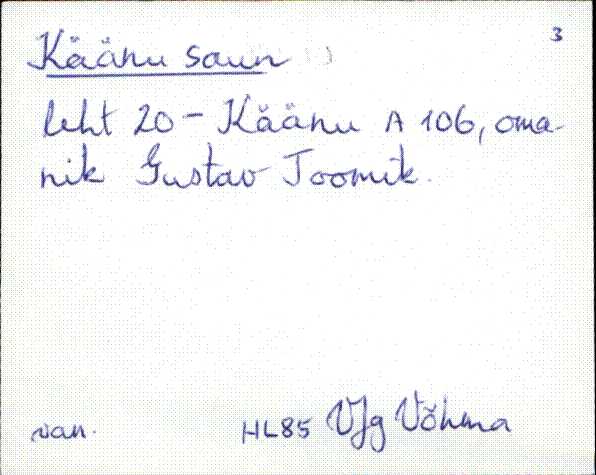 3
Käänu saun
leht 20 - Käänu A 106, oma-
nik Gustav Toomik.
van. HL85 VJg Võhma